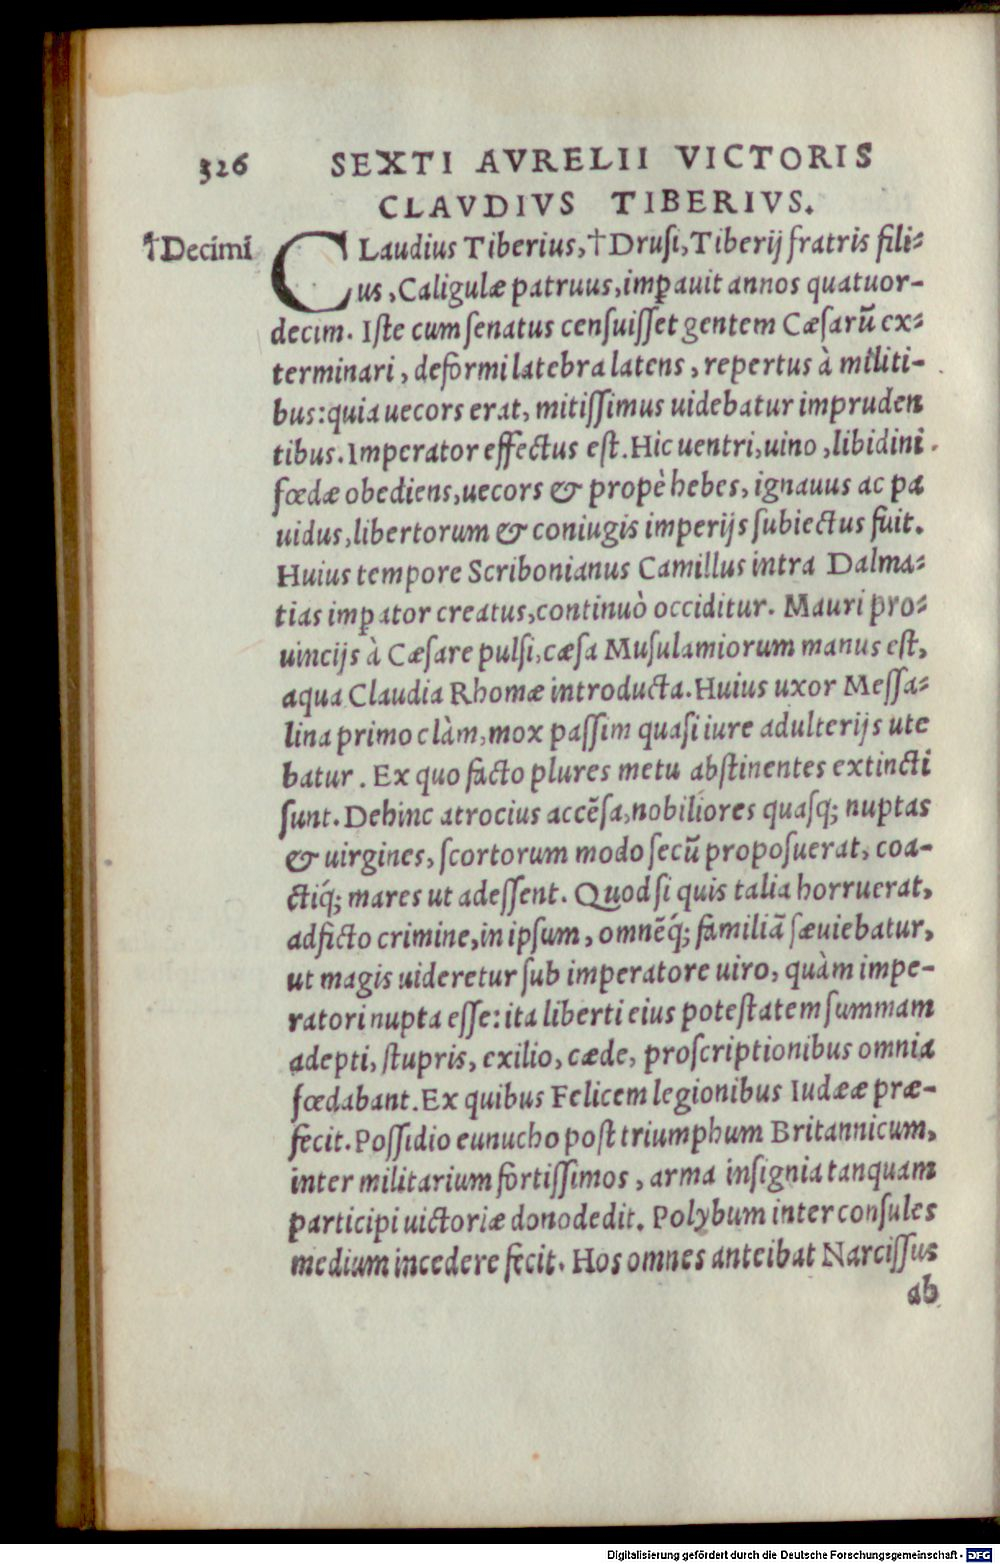 326 SEXTI AVRELII VICTORIS
CLAVDIVS TIBERIVS.
†Decimi
CLaudius Tiberius,†Drusi,Tiberij fratris fili-
us, Caligulæ patruus, imꝑauit annos quatuor-
decim. Iste cum senatus censuisset gentem Cæsarũ ex-
terminari, deformi latebra latens, repertus à militi-
bus: quia uecors erat, mitissimus uidebatur impruden
tibus. Imperator effectus est. Hic uentri, uino, libidini
fœdæ obediens, uecors & propè hebes, ignauus ac pa
uidus, libertorum & coniugis imperijs subiectus fuit.
Huius tempore Scribonianus Camillus intra Dalma-
tias imꝑator creatus, continuò occiditur. Mauri pro-
uincijs à Cæsare pulsi, cæsa Musulamiorum manus est,
aqua Claudia Rhomæ introducta. Huius uxor Messa-
lina primo clàm, mox passim quasi iure adulterijs ute
batur. Ex quo facto plures metu abstinentes extincti
sunt. Dehinc atrocius accẽsa, nobiliores quasq; nuptas
& uirgines, scortorum modo secũ proposuerat, coa-
ctiq́; mares ut adessent. Quod si quis talia horruerat,
adficto crimine, in ipsum, omnẽq́; familiã sæuiebatur,
ut magis uideretur sub imperatore uiro, quàm impe-
ratori nupta esse: ita liberti eius potestatem summam
adepti, stupris, exilio, cæde, proscriptionibus omnia
fœdabant. Ex quibus Felicem legionibus Iudææ præ-
fecit. Possidio eunucho post triumphum Britannicum,
inter militarium fortissimos, arma insignia tanquam
participi uictoriæ dono dedit. Polybum inter consules
medium incedere fecit. Hos omnes anteibat Narcissus
ab
Digitalisierung gefördert durch die Deutsche Forschungsgemeinschaft - DFG